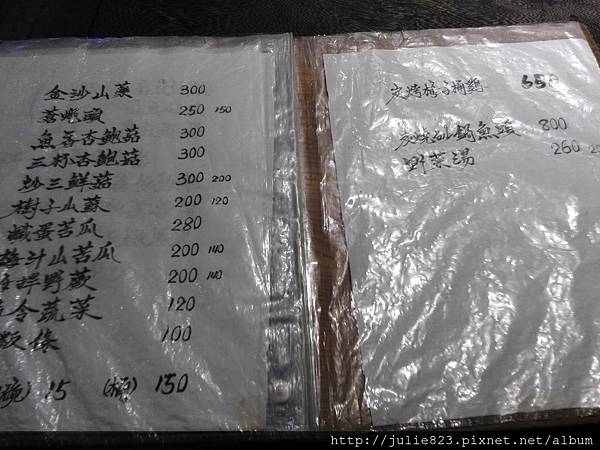 金沙山菜 300
250 150
魚香杏鮑菇 300
三杯杏鮑菇 300
炒三鮮菇 300 200
樹子山蘇 200 120
鹹蛋苦瓜 280
汁山苦瓜 200 140
野蕨 200 140
令蔬菜 120
100
碗) 15 (桶) 150
炭烤桶子雞 650
炭燒砂鍋魚頭 800
野菜湯 260
http://julie823.pixnet.net/album